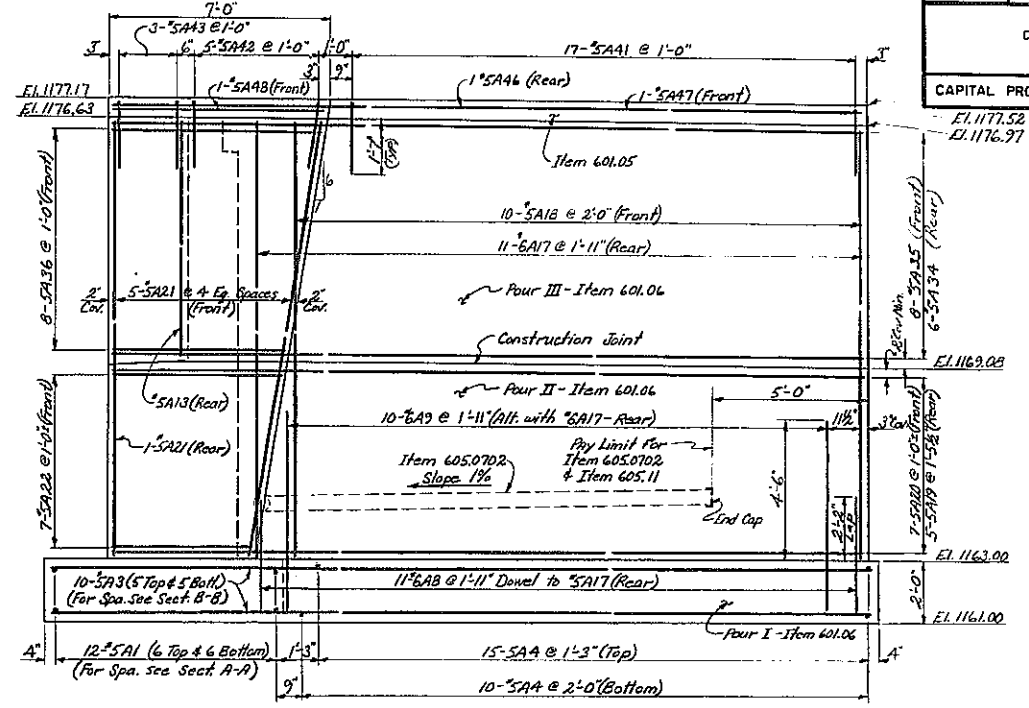 7'-0"
3-#5A43 @ 1'-0"
6"
5-#5A42 @ 1'-0"
1'-0"
17-#5A41 @ 1'-0"
3"
3"
9"
3"
CAPITAL PRO
El. 1177.17
El. 1176.63
1-#5A48 (Front)
1-#5A46 (Rear)
1-#5A47 (Front)
El. 1177.52
El. 1176.97
1'-7"
(Typ)
Item 601.05
6
8-5A36 @ 1'-0" (Front)
10-#5A18 @ 2'-0" (Front)
11-#6A17 @ 1'-11" (Rear)
8-#5A35 (Front)
6-#5A34 (Rear)
2"
Cov.
5-#5A21 @ 4 Eq. Spaces
(Front)
2"
Cov.
Pour III - Item 601.06
Construction Joint
El. 1169.08
#5A13 (Rear)
Pour II - Item 601.06
5'-0"
10-#6A9 @ 1'-11" (Alt. with #6A17-Rear)
11½"
3" Cov.
1-#5A21 (Rear)
7-5A22 @ 1'-0"± (Front)
Item 605.0702
Slope 1%
Pay Limit For
Item 605.0702
& Item 605.11
End Cap
4'-6"
2'-2"
Lap
7-5A20 @ 1'-0"± (Front)
5-5A19 @ 1'-5½" (Rear)
El. 1163.00
10-#5A3 (5 Top & 5 Bott.)
(For Spa. see Sect. B-B)
11-#6A8 @ 1'-11" Dowel to #5A17 (Rear)
2'-0"
El. 1161.00
Pour I - Item 601.06
4"
12-#5A1 (6 Top & 6 Bottom)
(For Spa. see Sect. A-A)
1'-3"
15-5A4 @ 1'-3" (Top)
4"
9"
10-#5A4 @ 2'-0" (Bottom)